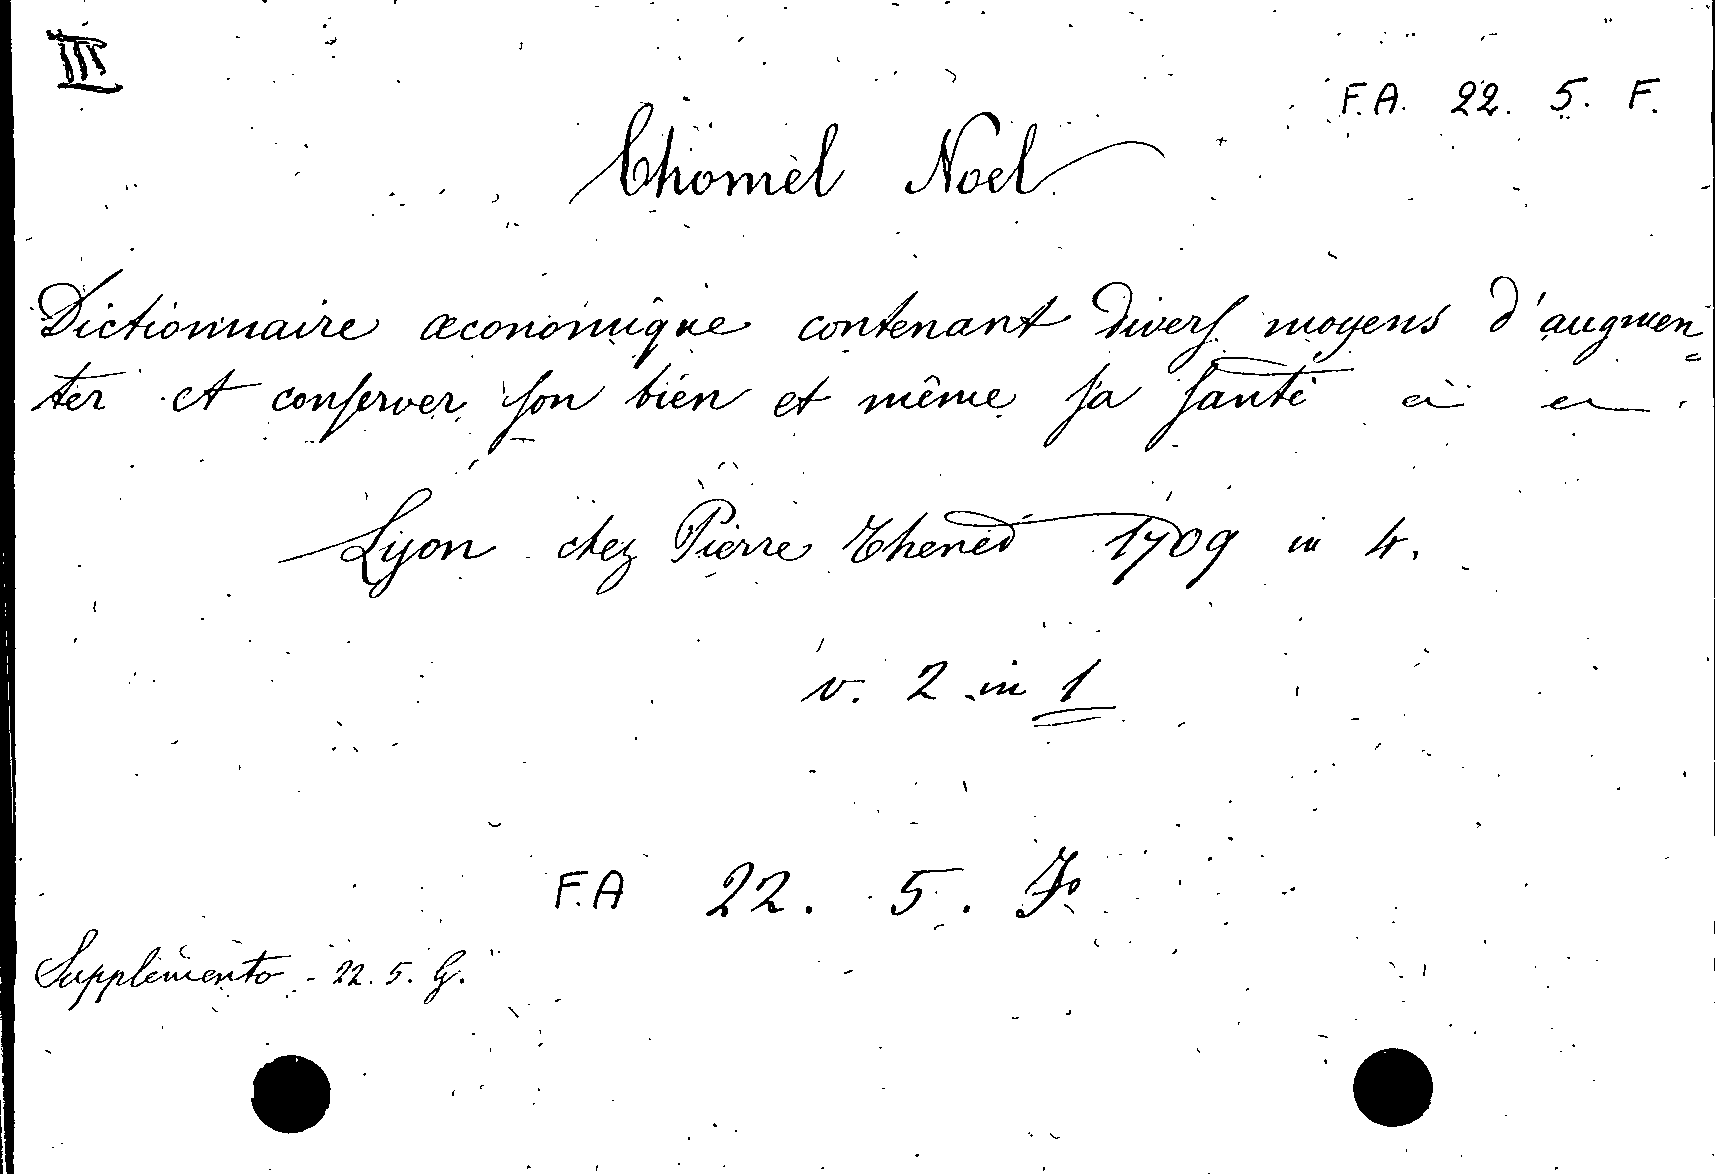 III
F.A. 22. 5. F.
Chomel Noel
Dictionnaire œconomique contenant divers moyens d'augmen=
ter et conserver son bien et même sa santé
Lyon chez Pierre Thened 1709 in 4.
v. 2 in 1
F.A 22. 5. F.
Supplemento - 22. 5. G.